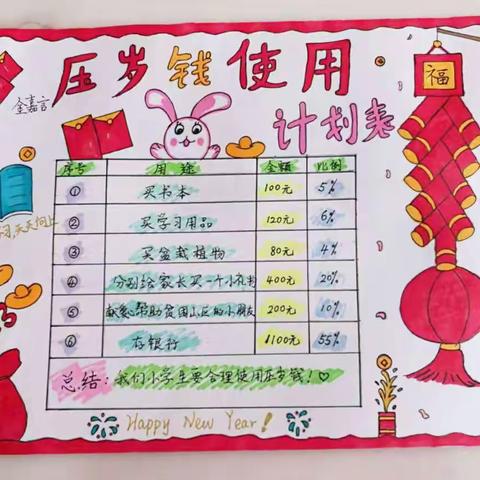 压岁钱使用
计划表
金嘉言
福
序号 用途 金额 比例
① 买书本 100元 5%
② 买学习用品 120元 6%
③ 买盆栽植物 80元 4%
④ 分别给家长买一个小礼物 400元 20%
⑤ 献爱心帮助贫困山区的小朋友 200元 10%
⑥ 存银行 1100元 55%
习,天天向上
总结:我们小学生要合理使用压岁钱!
Happy New Year!